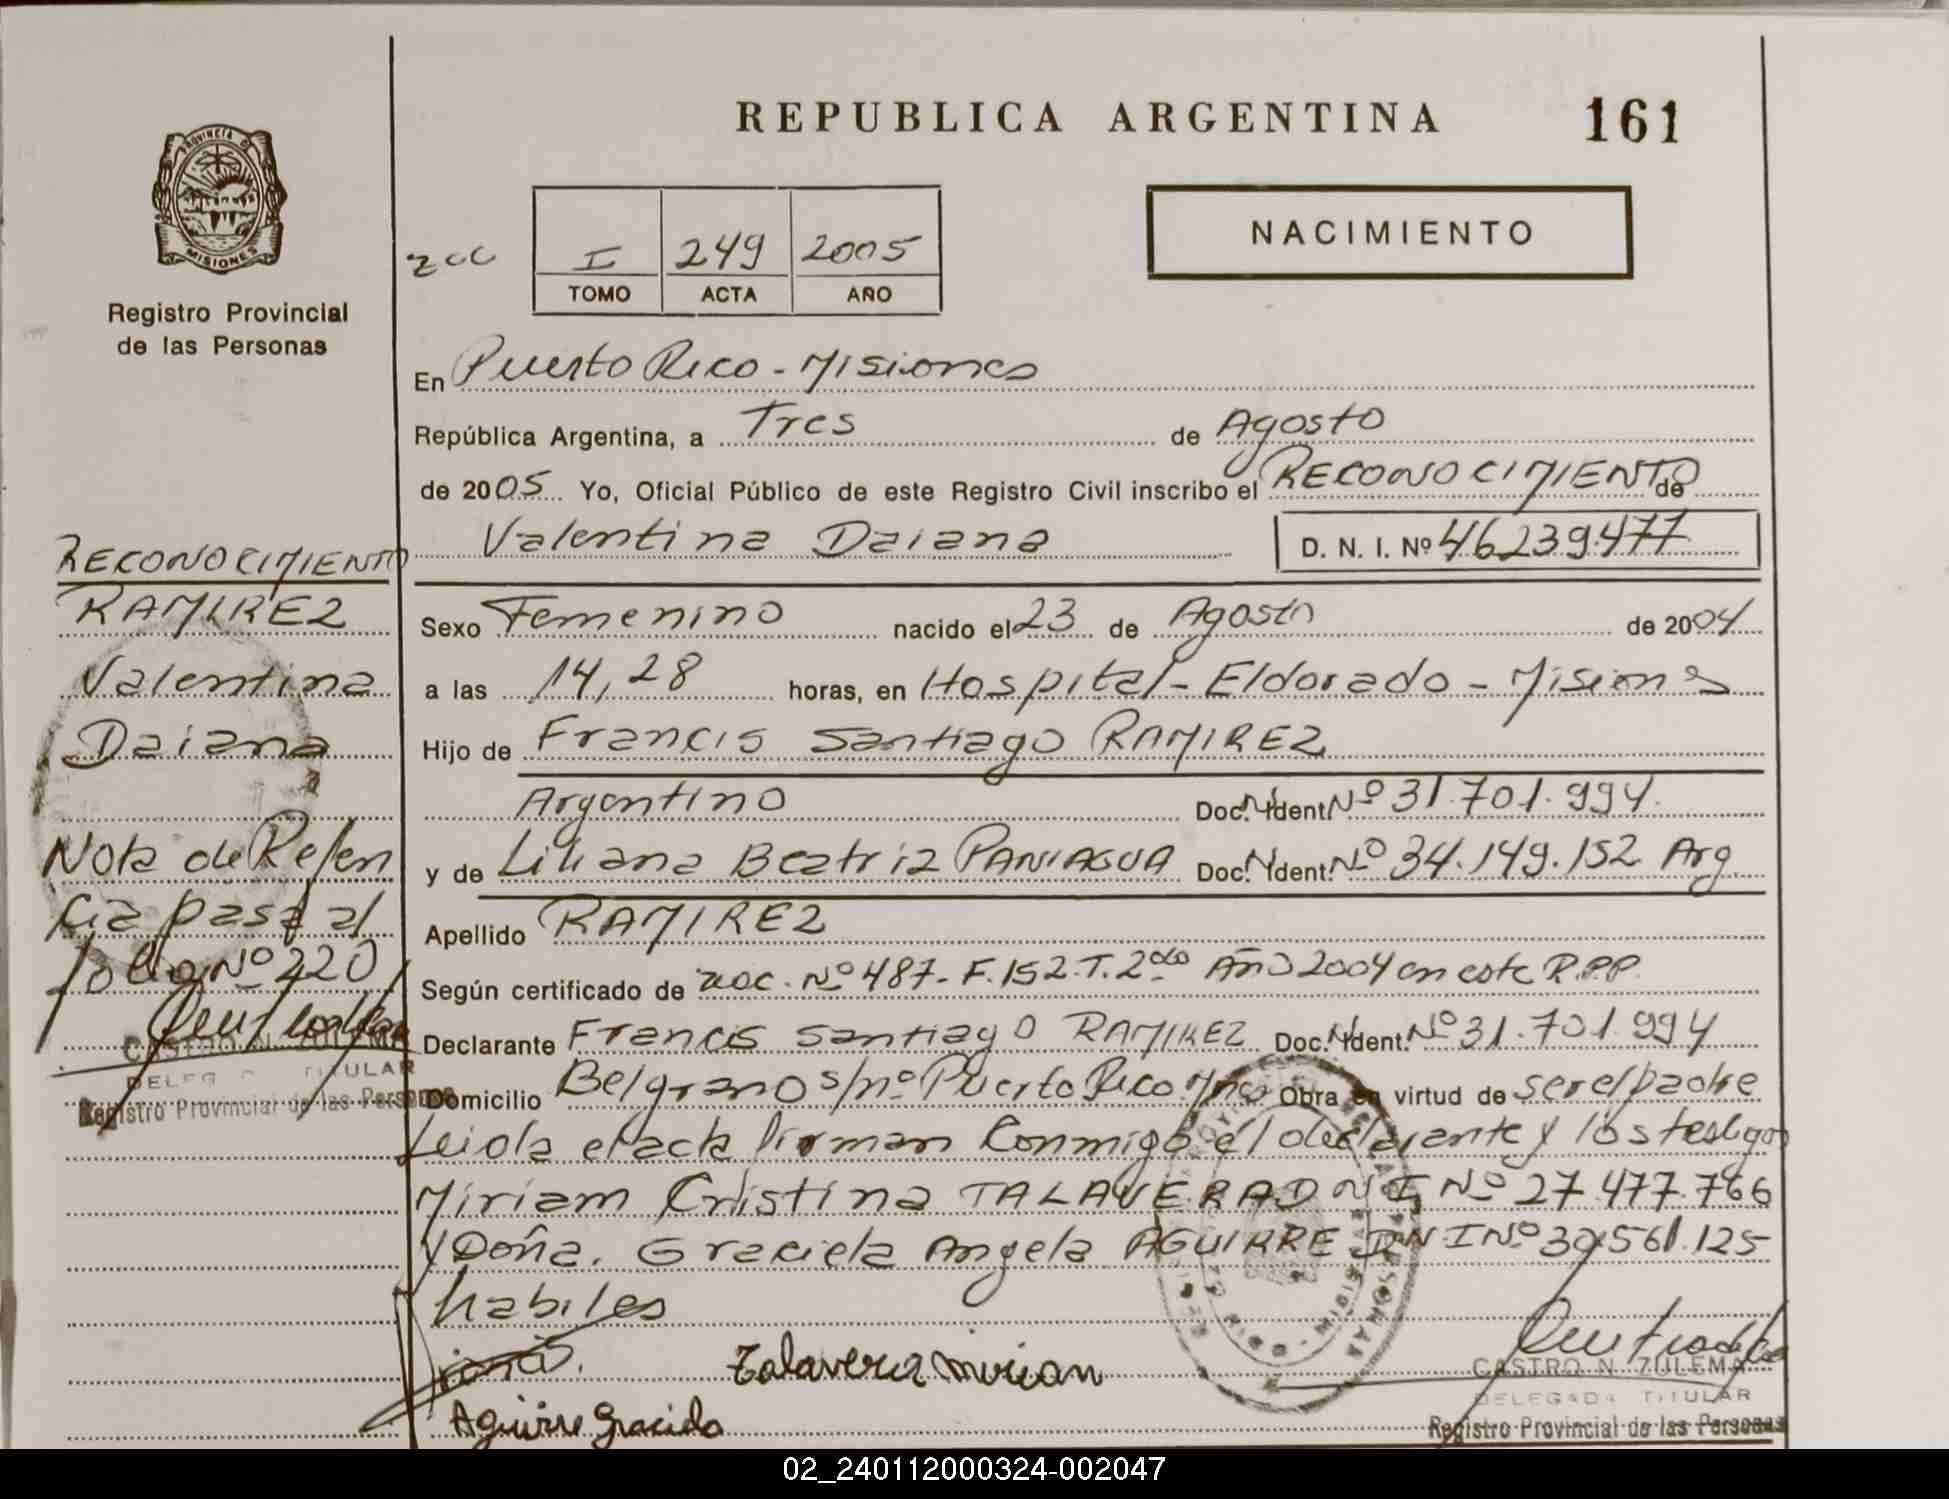 REPUBLICA ARGENTINA
161
PROVINCIA D
MISIONES
Registro Provincial
de las Personas
I 249 2005
TOMO ACTA AÑO
NACIMIENTO
En Puerto Rico - Misiones
República Argentina, a Tres de Agosto
de 2005 Yo, Oficial Público de este Registro Civil inscribo el RECONOCIMIENTO de
Valentina Daiana D. N. I. Nº 46239.477
Sexo Femenino nacido el 23 de Agosto de 2004
a las 14,28 horas, en Hospital - Eldorado - Misiones
Hijo de Francis Santiago RAMIREZ
Argentino Doc. Ident. Nº 31.701.994.
y de Liliana Beatriz PANIAGUA Doc. Ident. Nº 34.149.152 Arg
Apellido RAMIREZ
Según certificado de nac. Nº 487- F.152.T.2do Año 2004 en este R.P.P.
Declarante Francis Santiago RAMIREZ Doc. Ident. Nº 31.701.994
Domicilio Belgrano s/nº Puerto Rico Mnes Obra en virtud de ser el padre
Leida el acta firman conmigo el declarante y los testigos
Miriam Cristina TALAVERA DNI Nº 27.477.766
y Doña. Graciela Angela AGUIRRE DNI Nº 30.561.125
habiles
Talavera Mirian
Aguirre Graciela
CASTRO N. ZULEMA
DELEGADA TITULAR
Registro Provincial de las Personas
RECONOCIMIENTO
RAMIREZ
Valentina
Daiana
Nota de Referen
cia pasa al
folio Nº 220
CASTRO N. ZULEMA
DELEG TITULAR
Registro Provincial de las Personas
02_240112000324-002047